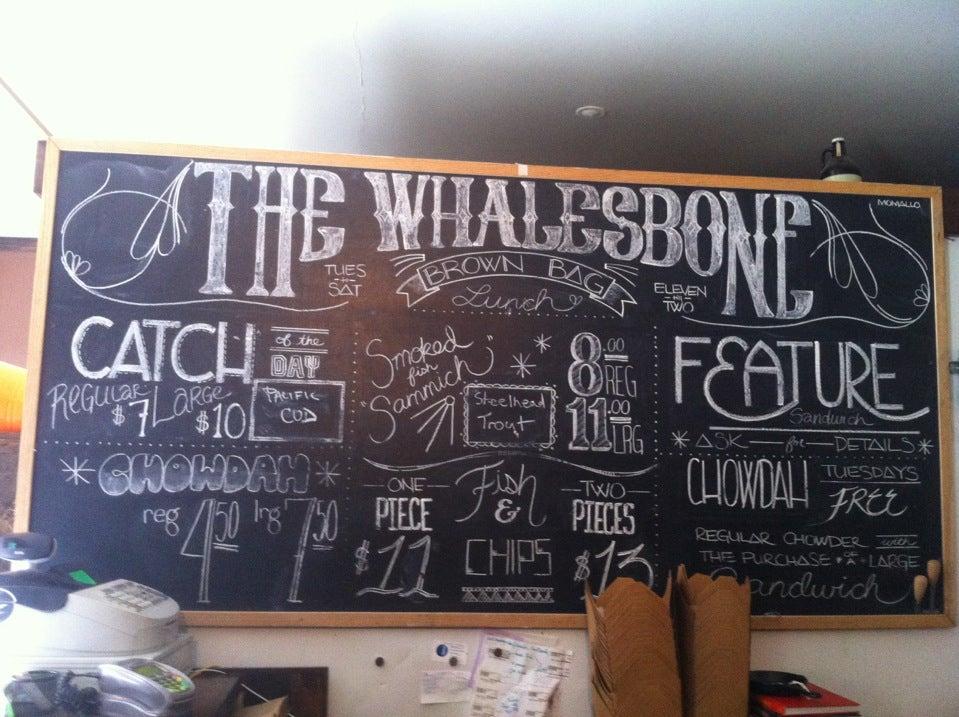 THE WHALESBONE
MOMALLO.
TUES
SAT
BROWN BAG
Lunch
ELEVEN
TWO
CATCH of the
DAY
REGULAR LARGE
$7 $10
PACIFIC
COD
Smoked
fish
"Sammich"
Steelhead
Trout
8.00
REG
11.00
LRG
FEATURE
Sandwich
ASK for DETAILS
CHOWDAH
reg 4 50 lrg 7 50
ONE
PIECE
$11
Fish
&
CHIPS
TWO
PIECES
$13
CHOWDAH TUESDAYS
FREE
REGULAR CHOWDER with
THE PURCHASE OF A LARGE
Sandwich